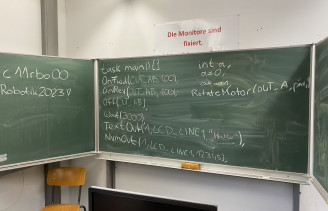 Die Monitore sind
fixiert.
c Mrbo00
Robotik2023!
task main(){
OnFwd(OUT_AB,100);
OnRev(OUT_AB,100);
Off(OUT_AB);
Wait(3000);
TextOut(1,LCD_LINE1,
NumOut(1,LCD_LINE1,12345);
int a;
a=0;
RotateMotor(OUT_A,